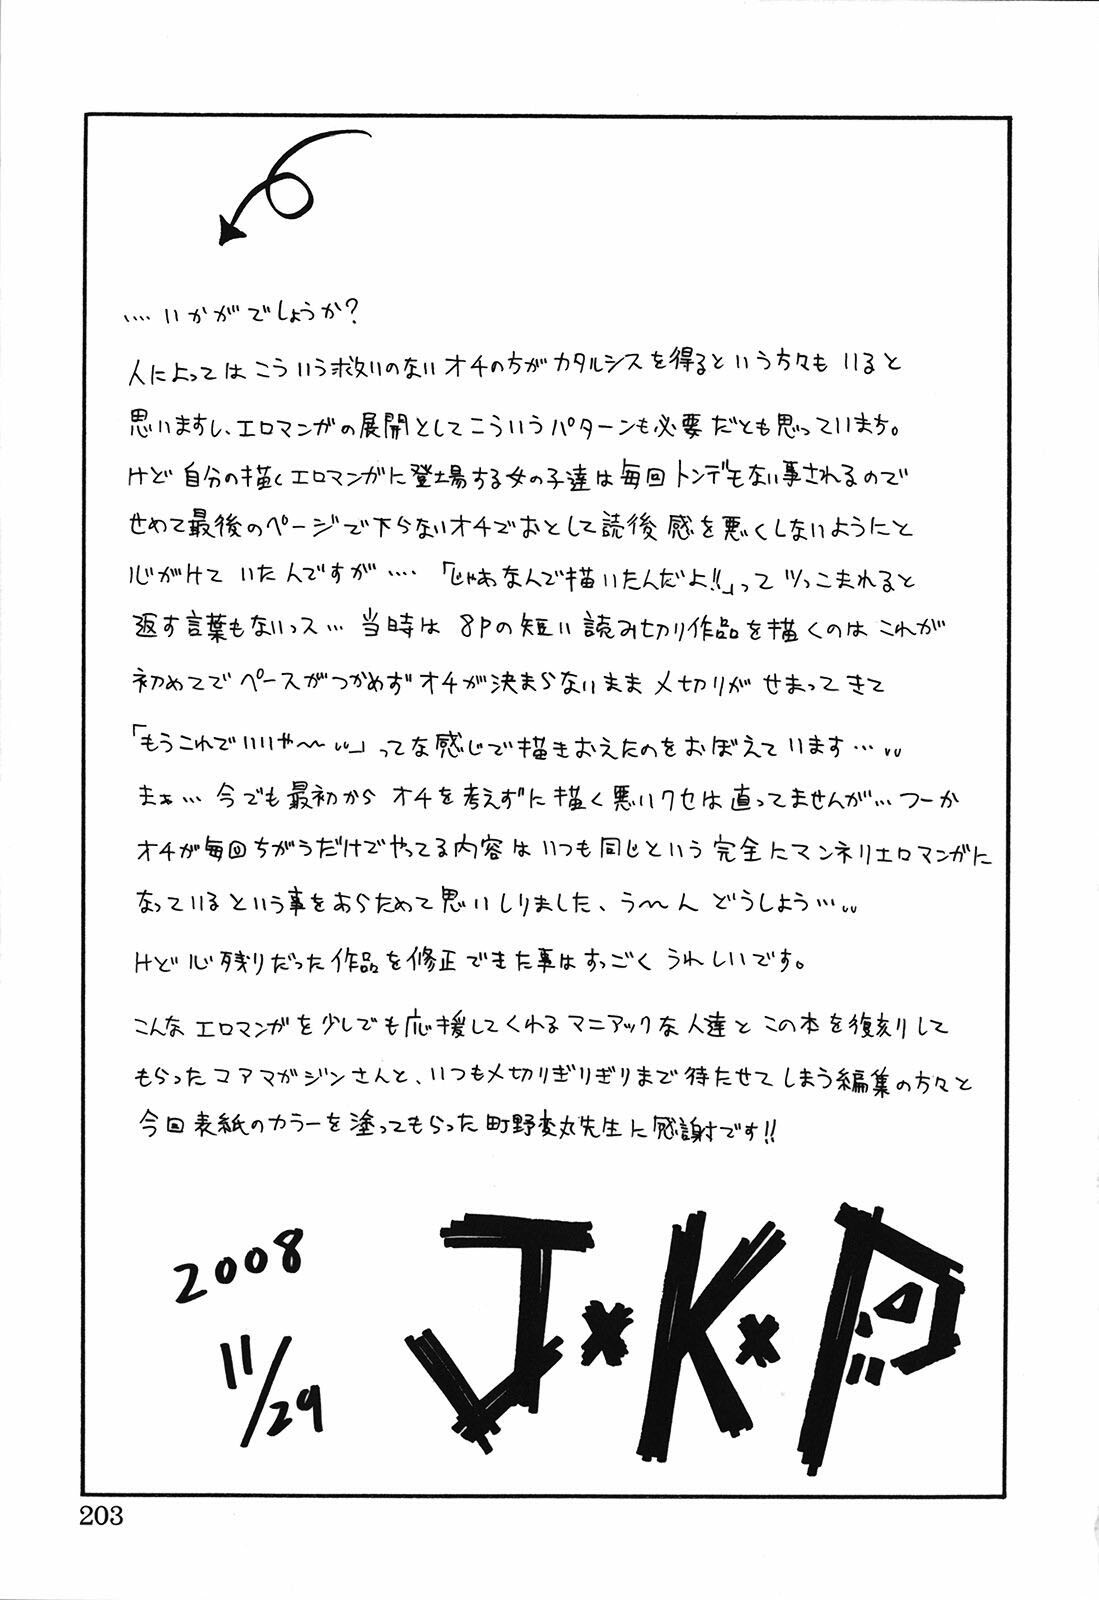 ‥‥いかがでしょうか？
人によってはこういう救いのないオチの方がカタルシスを得るという方々もいると
思いますし、エロマンガの展開としてこういうパターンも必要だとも思っています。
けど自分の描くエロマンガに登場する女の子達は毎回トンデモない事されるので
せめて最後のページで下らないオチでおとして読後感を悪くしないようにと
心がけていたんですが‥‥「じゃあなんで描いたんだよ!!」ってツッこまれると
返す言葉もないっス…当時は8Pの短い読み切り作品を描くのはこれが
初めてでペースがつかめずオチが決まらないまま〆切りがせまってきて
「もうこれでいいや〜〜」ってな感じで描きおえたのをおぼえています…
まぁ…今でも最初からオチを考えずに描く悪いクセは直ってませんが…つーか
オチが毎回ちがうだけでやってる内容はいつも同じという完全にマンネリエロマンガに
なっているという事をあらためて思いしりました、う〜〜んどうしよう…
けど心残りだった作品を修正できた事はすっごくうれしいです。
こんなエロマンガを少しでも応援してくれるマニアックな人達とこの本を復刻して
もらったコアマガジンさんと、いつも〆切りぎりぎりまで待たせてしまう編集の方々と
今回表紙のカラーを塗ってもらった町野変丸先生に感謝です!!
2008
11/29
J×K×P
203